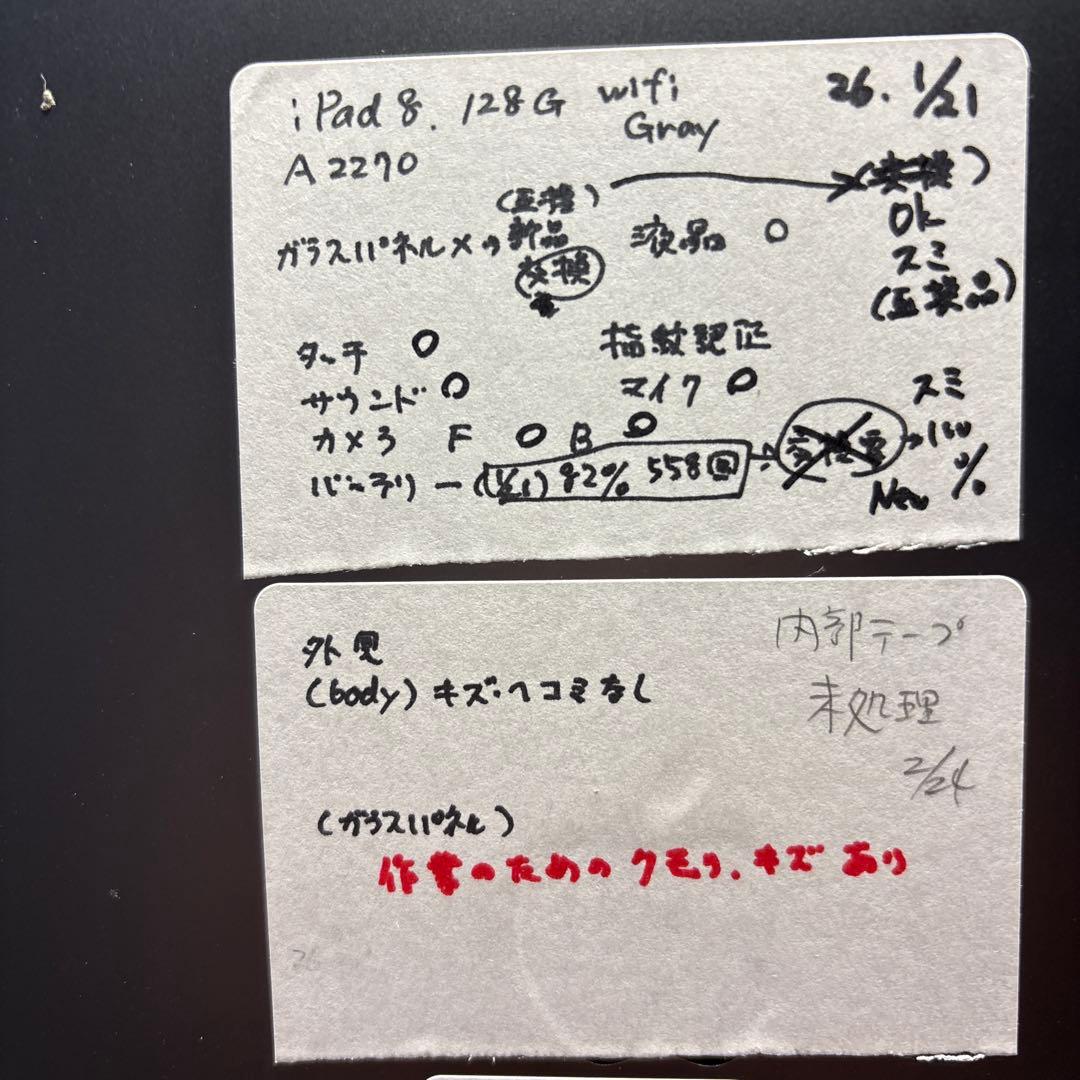 iPad 8. 128G wifi 26. 1/21
Gray
A2270
(互換)
ガラスパネル× 新品 液晶 ○ OK
交換 スミ
(互換品)
タッチ ○ 指紋認証
サウンド ○ マイク ○ スミ
カメラ F ○ B ○ 100
バッテリー (1/21) 82% 558回 New %
外見 内部テープ
(body) キズ・ヘコミなし 未処理
2/24
(ガラスパネル)
作業のためのクモリ、キズあり